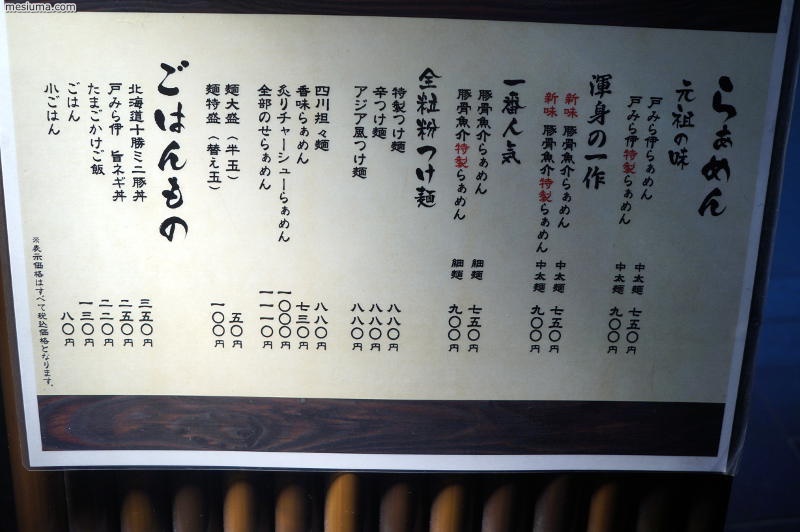 mesiuma.com
らぁめん
元祖の味
戸みら伊らぁめん 中太麺 七五〇円
戸みら伊特製らぁめん 中太麺 九〇〇円
渾身の一作
新味 豚骨魚介らぁめん 中太麺 七五〇円
新味 豚骨魚介特製らぁめん 中太麺 九〇〇円
一番人気
豚骨魚介らぁめん 細麺 七五〇円
豚骨魚介特製らぁめん 細麺 九〇〇円
全粒粉つけ麺
特製つけ麺 八八〇円
辛つけ麺 八八〇円
アジア風つけ麺 八八〇円
四川担々麺 八八〇円
香味らぁめん 七三〇円
炙りチャーシューらぁめん 一〇〇〇円
全部のせらぁめん 一一一〇円
麺大盛（半玉） 五〇円
麺特盛（替え玉） 一〇〇円
ごはんもの
北海道十勝ミニ豚丼 三五〇円
戸みら伊 旨ネギ丼 二五〇円
たまごかけご飯 二二〇円
ごはん 一三〇円
小ごはん 八〇円
※表示価格はすべて税込価格となります。